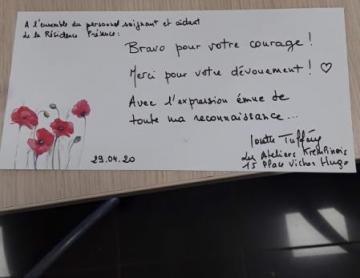 A l'ensemble du personnel soignant et aidant
de la Résidence Présence :
Bravo pour votre courage !
Merci pour votre dévouement ! ♡
Avec l'expression émue de
toute ma reconnaissance...
29.04.20
des Ateliers
15 Place Victor Hugo